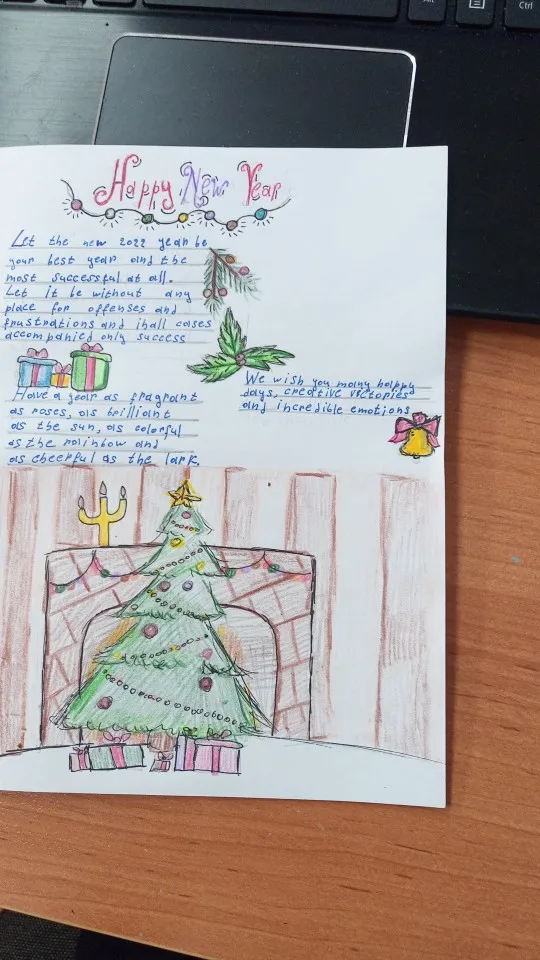 Alt
Ctrl
Happy New Year
Let the new 2022 year be
your best year and the
most successful at all.
Let it be without any
place for offenses and
frustrations and ihall cases
accompanied only success
Have a year as fragrant
as roses, as brilliant
as the sun, as colorful
as the rainbow and
as cheerful as the lark.
We wish you many happy
days, creative victories
and incredible emotions